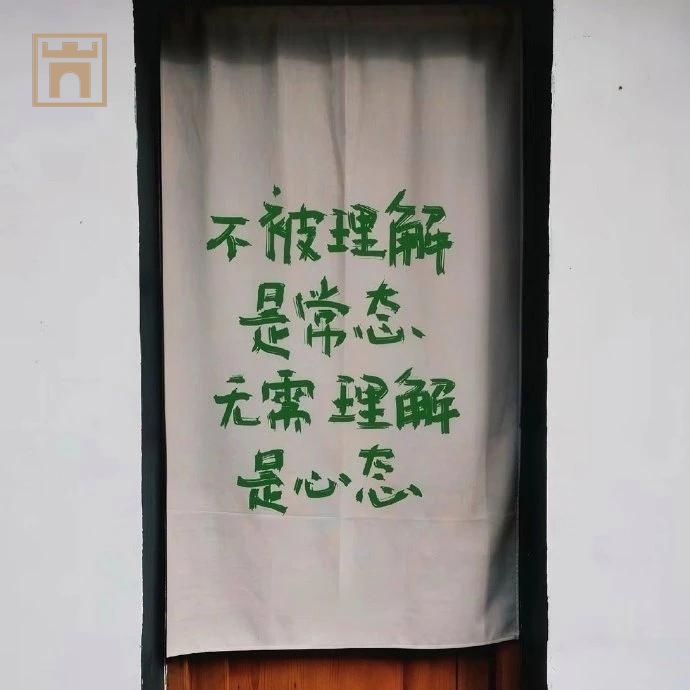 不被理解
是常态
无需理解
是心态